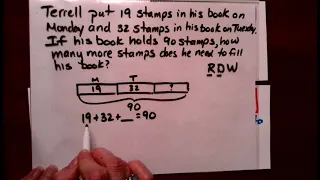 Terrell put 19 stamps in his book on
Monday and 32 stamps in his book on Tuesday.
If his book holds 90 stamps, how
many more stamps does he need to fill
his book?
RDW
M T
19 32 ?
90
19+32+__=90